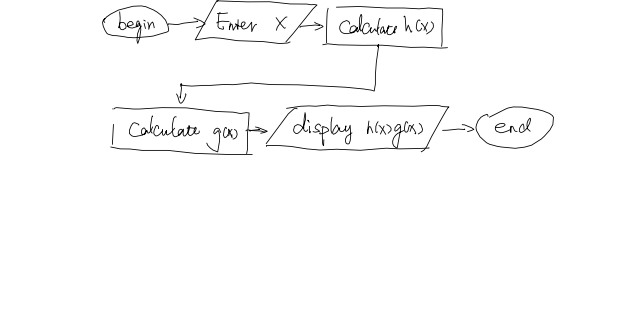 begin Enter X Calculate h(x)
Calculate g(x) display h(x)g(x) end